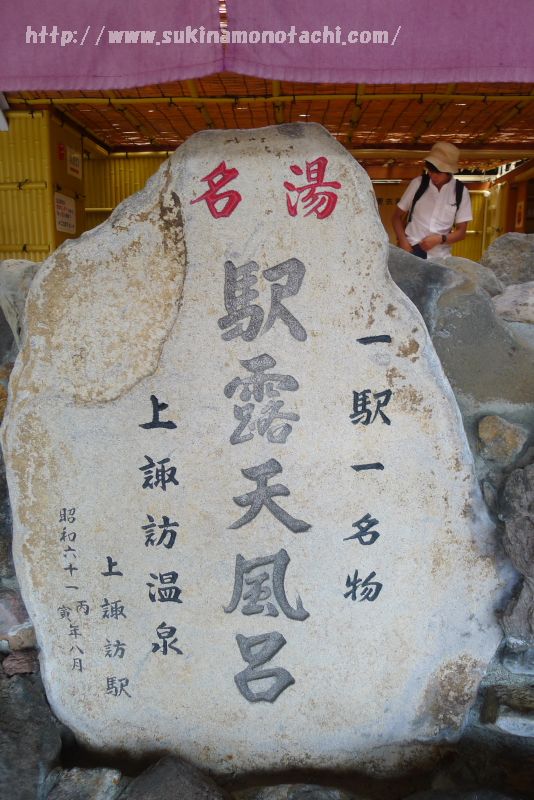 http://www.sukinamonotachi.com/
名湯
一駅一名物
駅露天風呂
上諏訪温泉
上諏訪駅
昭和六十一丙寅年八月